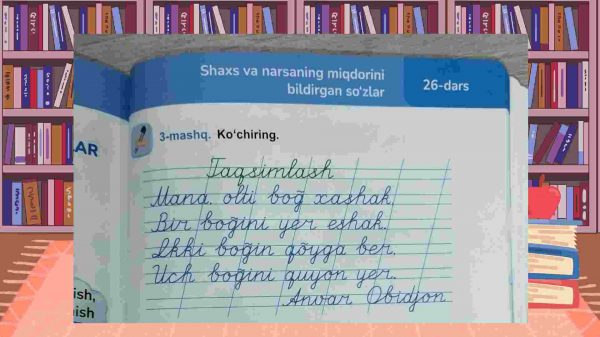 Shaxs va narsaning miqdorini
bildirgan so'zlar
26-dars
AR
3-mashq. Ko'chiring.
Taqsimlash
Mana, olti boğ xashak,
Bir boğini yer eshak,
Ikki boğin qõyga ber,
Uch boğini quyon yer.
Anvar Obidjon
ish,
ish